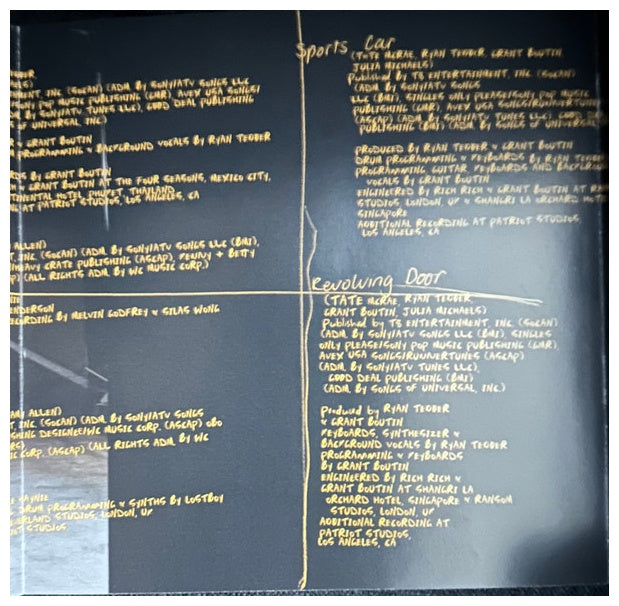 DER
LS)
MENT, INC (SOCAN) (ADM. By SONY/ATV SONGS LLC
SONY POP MUSIC PUBLISHING (GMR), AVEX USA SONGS/
By SONY/ATV TUNES LLC), GOOD DEAL PUBLISHING
OF UNIVERSAL, INC)
GRANT BOUTIN
PROGRAMMING & BACKGROUND VOCALS By RYAN TEDDER
RDS By GRANT BOUTIN
GRANT BOUTIN AT THE FOUR SEASONS, MEXICO CITY,
TINENTAL HOTEL, PHUKET, THAILAND
AT PATRIOT STUDIOS, LOS ANGELES, CA
ALLEN)
T, INC. (SOCAN) (ADM. By SONY/ATV SONGS LLC (BMI),
HEAVY CRATE PUBLISHING (ASCAP), KENNY + BETTY
P) (ALL RIGHTS ADM. By WC MUSIC CORP.)
NIE
ENDERSON
CORDING By MELVIN GODFREY & SILAS WONG
AMY ALLEN)
T, INC. (SOCAN) (ADM. By SONY/ATV SONGS
SHING DESIGNEE/WC MUSIC CORP. (ASCAP) OBO
RS)
IC CORP. (ASCAP) (ALL RIGHTS ADM. By WC
HAYNIE
DRUM PROGRAMMING & SYNTHS By LOSTBOY
ERLAND STUDIOS, LONDON, UK
T STUDIOS
Sports Car
(TATE McRAE, RYAN TEDDER, GRANT BOUTIN,
JULIA MICHAELS)
Published By T8 ENTERTAINMENT, INC. (SOCAN)
(ADM By SONY/ATV SONGS
LLC (BMI), SINGLES ONLY PLEASE/SONY POP MUSIC
PUBLISHING (GMR), AVEX USA SONGS/RUNVERTUNES
(ASCAP) (ADM By SONY/ATV TUNES LLC), GOOD DEAL
PUBLISHING (BMI) (ADM. By SONGS OF UNIVERSAL,
PRODUCED By RYAN TEDDER & GRANT BOUTIN
DRUM PROGRAMMING & KEYBOARDS By RYAN TEDDER
PROGRAMMING, GUITAR, KEYBOARDS AND BACKGROUND
VOCALS By GRANT BOUTIN
ENGINEERED By RICH RICH & GRANT BOUTIN AT RAN
STUDIOS, LONDON, UK & SHANGRI LA ORCHARD HOTE
SINGAPORE
ADDITIONAL RECORDING AT PATRIOT STUDIOS,
LOS ANGELES, CA
Revolving Door
(TATE McRAE, RYAN TEDDER,
GRANT BOUTIN, JULIA MICHAELS)
Published by T8 ENTERTAINMENT, INC. (SOCAN)
(ADM. By SONY/ATV SONGS LLC (BMI), SINGLES
ONLY PLEASE/SONY POP MUSIC PUBLISHING (GMR),
AVEX USA SONGS/RUNVERTUNES (ASCAP)
(ADM. By SONY/ATV TUNES LLC),
GOOD DEAL PUBLISHING (BMI)
(ADM. By SONGS OF UNIVERSAL, INC.)
Produced by RYAN TEDDER
& GRANT BOUTIN
KEYBOARDS, SYNTHESIZER &
BACKGROUND VOCALS By RYAN TEDDER
PROGRAMMING & KEYBOARDS
By GRANT BOUTIN
ENGINEERED By RICH RICH &
GRANT BOUTIN AT SHANGRI LA
ORCHARD HOTEL, SINGAPORE & RANSOM
STUDIOS, LONDON, UK
ADDITIONAL RECORDING AT
PATRIOT STUDIOS,
LOS ANGELES, CA